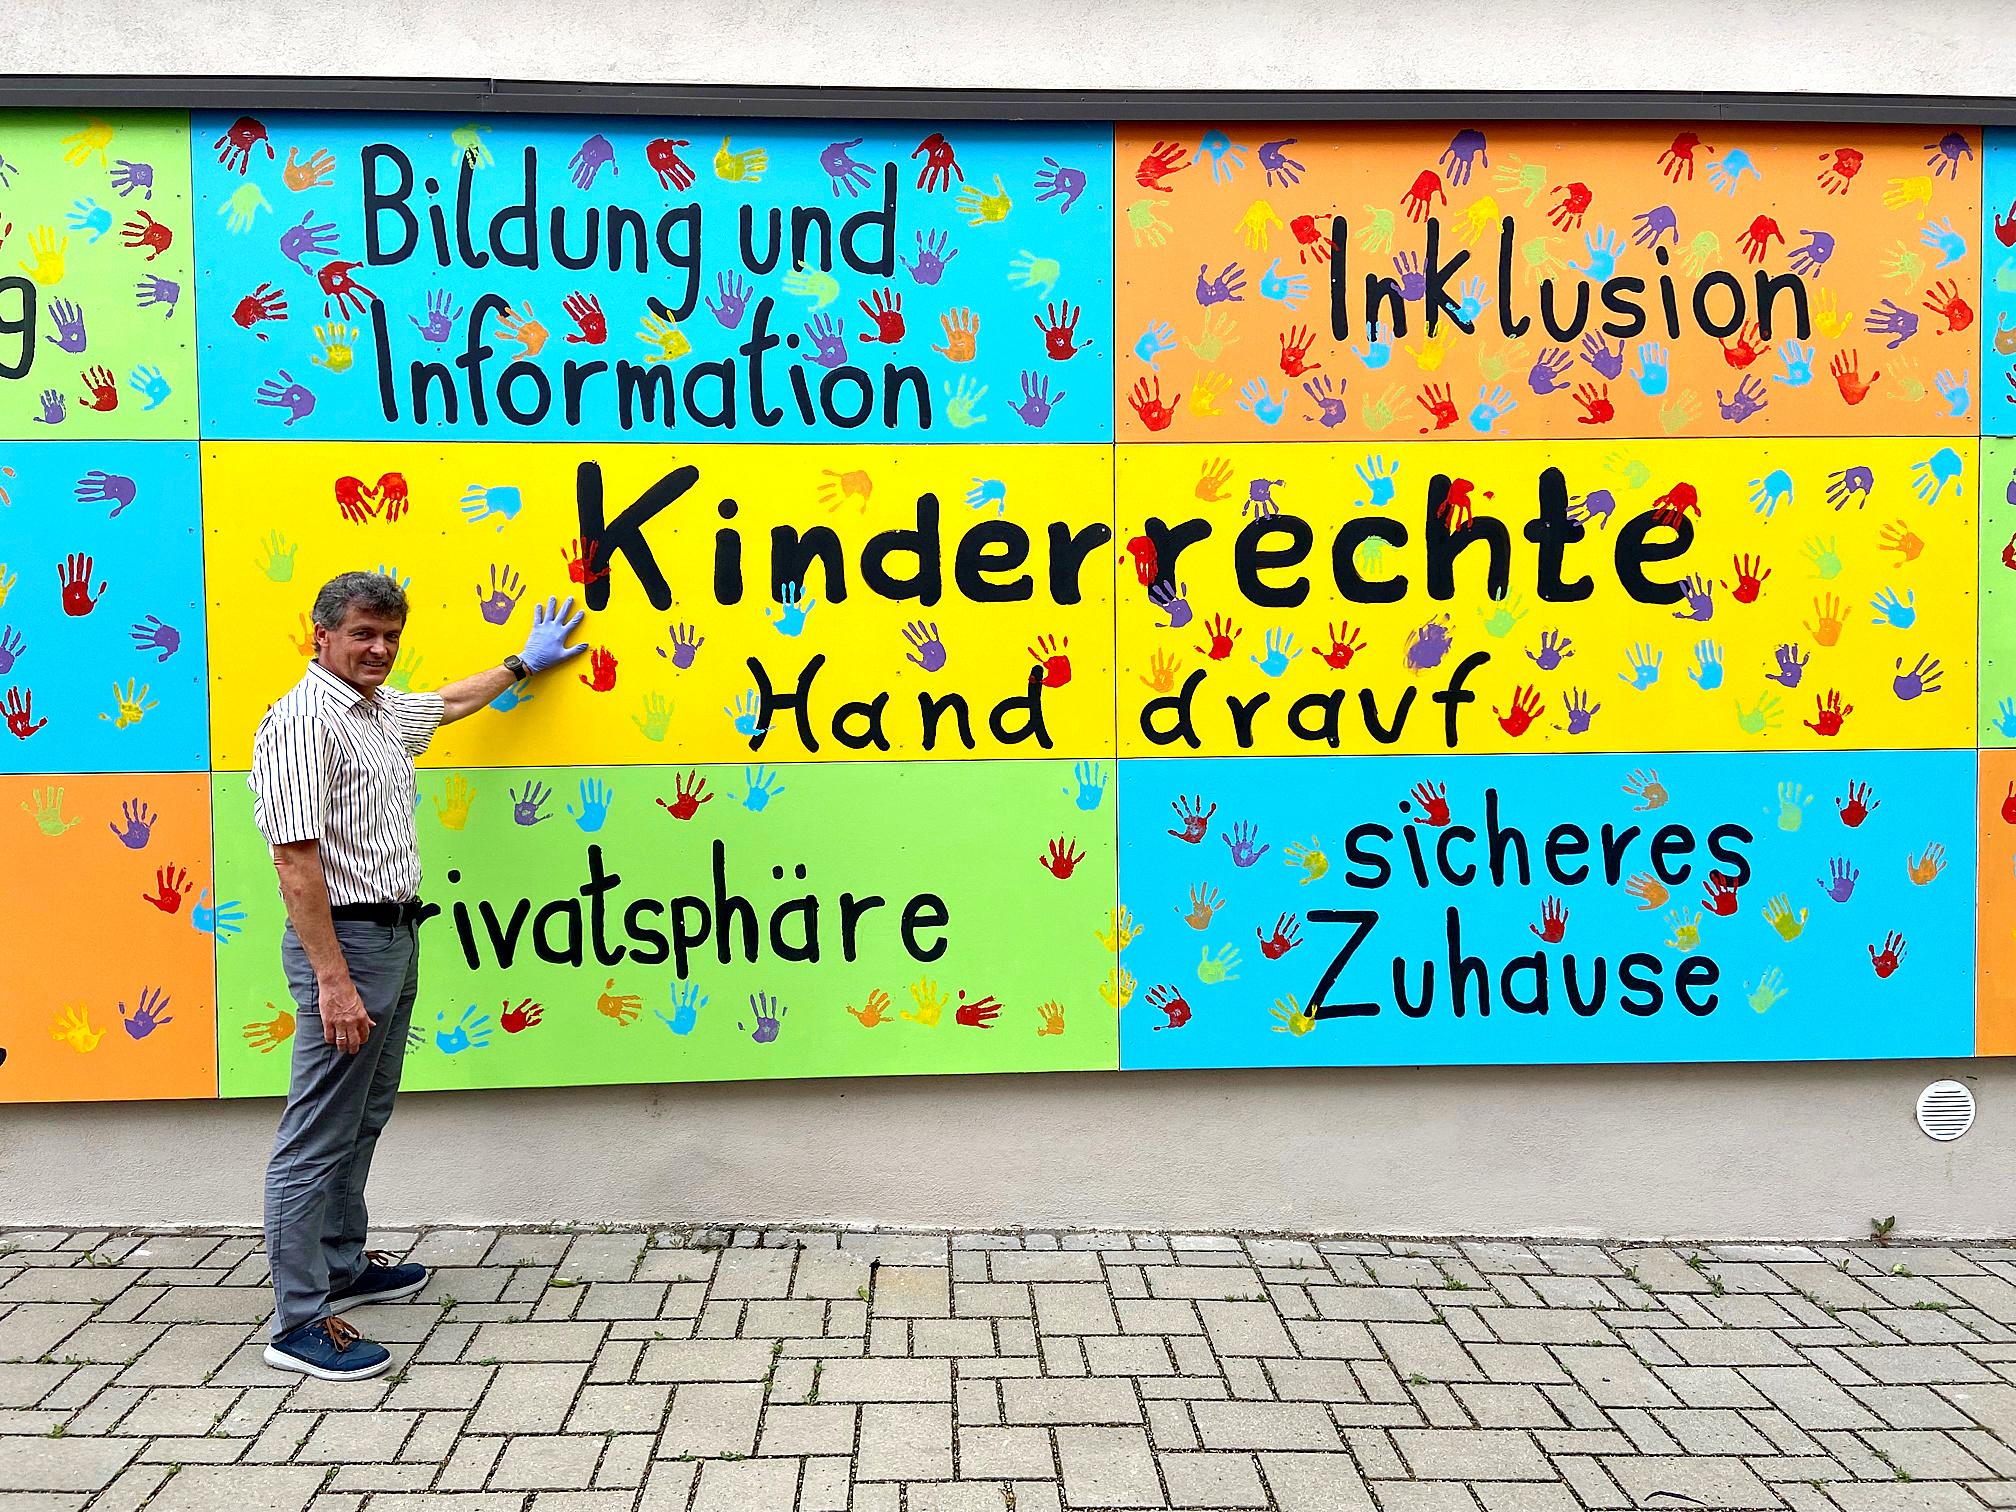 g
Bildung und
Information
Inklusion
Kinderrechte
Hand drauf
rivatsphäre
sicheres
Zuhause